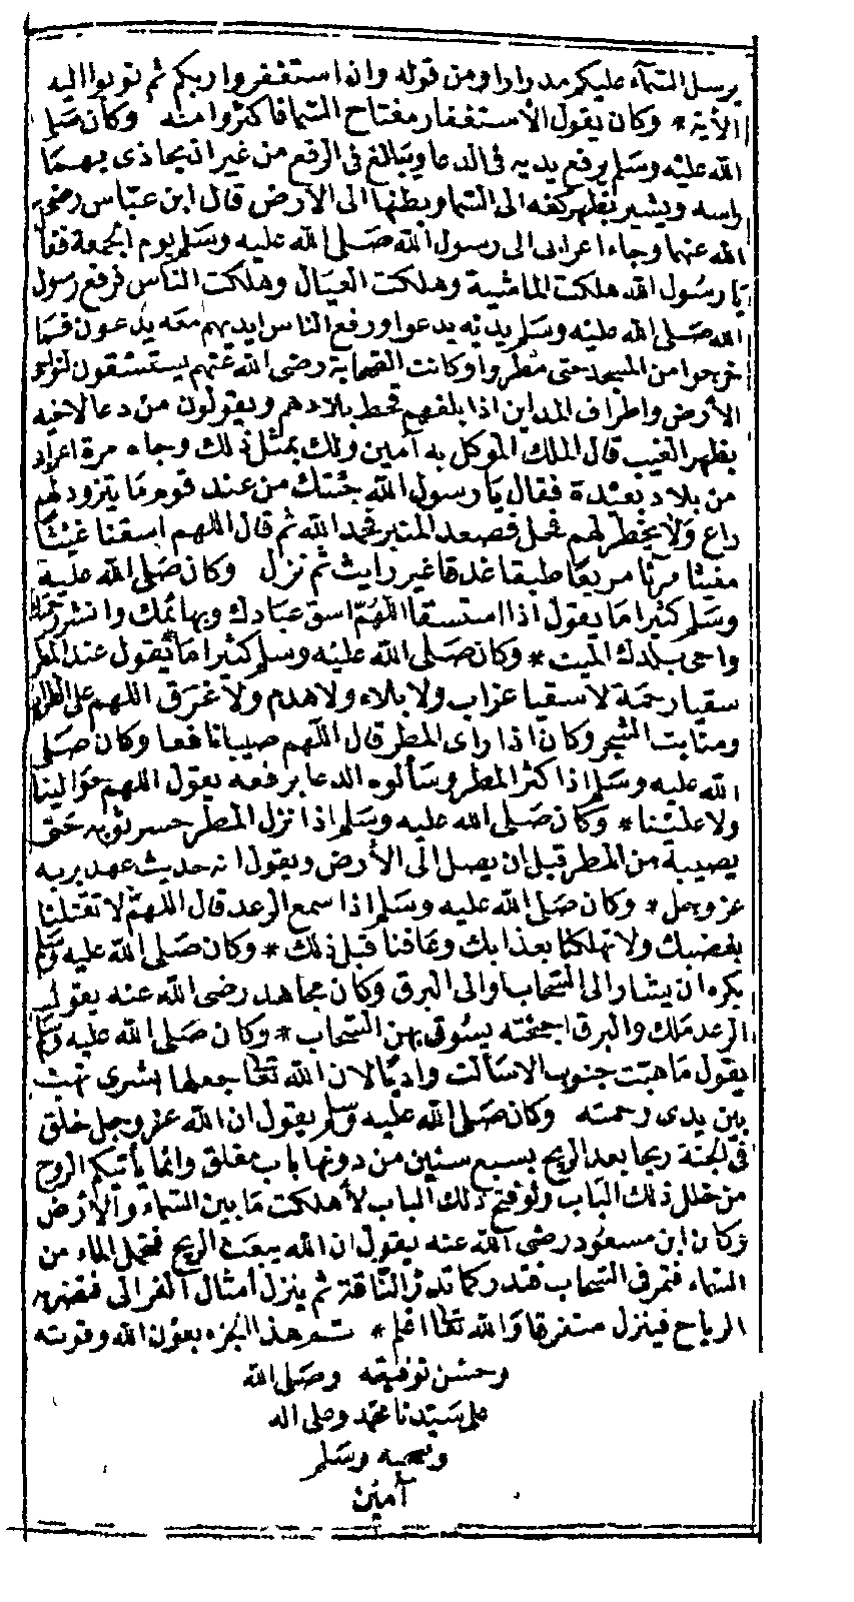 يرسل السماء عليكم مدرارا ومن قوله وان استغفروا ربكم ثم توبوا اليه
الأية * وكان يقول الأستغفار مفتاح السما فاكثروا منه وكان صلى
الله عليه وسلم يرفع يديه فى الدعا ويبالغ فى الرفع من غير ان يحاذى بهما
راسه ويشير بظهر كفه الى السما وبطنها الى الأرض قال ابن عباس رضى
الله عنها وجاء اعرابى الى رسول الله صلى الله عليه وسلم يوم الجمعة فقال
يا رسول الله هلكت الماشية وهلكت العيال وهلكت الناس فرفع رسول
الله صلى الله عليه وسلم يديه يدعوا ورفع الناس ايديهم معه يدعون فما
خرجوا من المسجد حتى مطروا وكانت الصحابة رضى الله عنهم يستسقون لنواحى
الأرض واطراف المداين اذا بلغهم قحط بلادهم ويقولون من دعا لاخيه
بظهر الغيب قال الملك الموكل به آمين ولك بمثل ذلك وجاء مرة اعرابى
من بلاد بعيدة فقال يا رسول الله جئتك من عند قوم ما يتزود لهم
راع ولا يخطر لهم فحل فصعد المنبر فحمد الله ثم قال اللهم اسقنا غيثا
مغيثا مرئا مريعا طبقا غدقا غير رايث ثم نزل وكان صلى الله عليه
وسلم كثيرا ما يقول اذا استسقا اللهم اسق عبادك وبهائمك وانشر رحمتك
واحى بلدك الميت * وكان صلى الله عليه وسلم كثيرا ما يقول عند المطر
سقيا رحمة لا سقيا عزاب ولا بلاء ولا هدم ولا غرق اللهم على الظراب
ومنابت الشجر وكان اذا راى المطر قال اللهم صيبا نافعا وكان صلى
الله عليه وسلم اذا كثر المطر وسألوه الدعا برفعه يقول اللهم حوالينا
ولا علينا * وكان صلى الله عليه وسلم اذا نزل المطر حسر ثوبه حتى
يصيبة من المطر قبل ان يصل الى الأرض ويقول انه حديث عهد بربه
عز وجل * وكان صلى الله عليه وسلم اذا سمع الرعد قال اللهم لا تقتلنا
بغضبك ولا تهلكنا بعذابك وعافنا قبل ذلك * وكان صلى الله عليه وسلم
يكره ان يشار الى السحاب والى البرق وكان مجاهد رضى الله عنه يقول
الرعد ملك والبرق اجنحته يسوق بهن السحاب * وكان صلى الله عليه وسلم
يقول ما هبت جنوب الا سالت واديا لان الله تعا جعلها بشرى تهب
بين يدى رحمته وكان صلى الله عليه وسلم يقول ان الله عز وجل خلق
فى الجنة ريحا بعد الريح بسبع سنين من دونها باب مغلق وانما يأتيكم الروح
من خلل ذلك الباب ولو فتح ذلك الباب لأهلكت ما بين السماء والأرض
وكان ابن مسعود رضى الله عنه يقول ان الله يبعث الريح فتحمل الماء من
السماء فتمر فى السحاب فتدر كما تدر الناقة ثم ينزل امثال الغرالى فتضربه
الرياح فينزل متفرقا والله تعا اعلم * تم هذا الجزء بعون الله وقوته
وحسن توفيقه وصلى الله
على سيدنا محمد وعلى اله
وصحبه وسلم
آمين